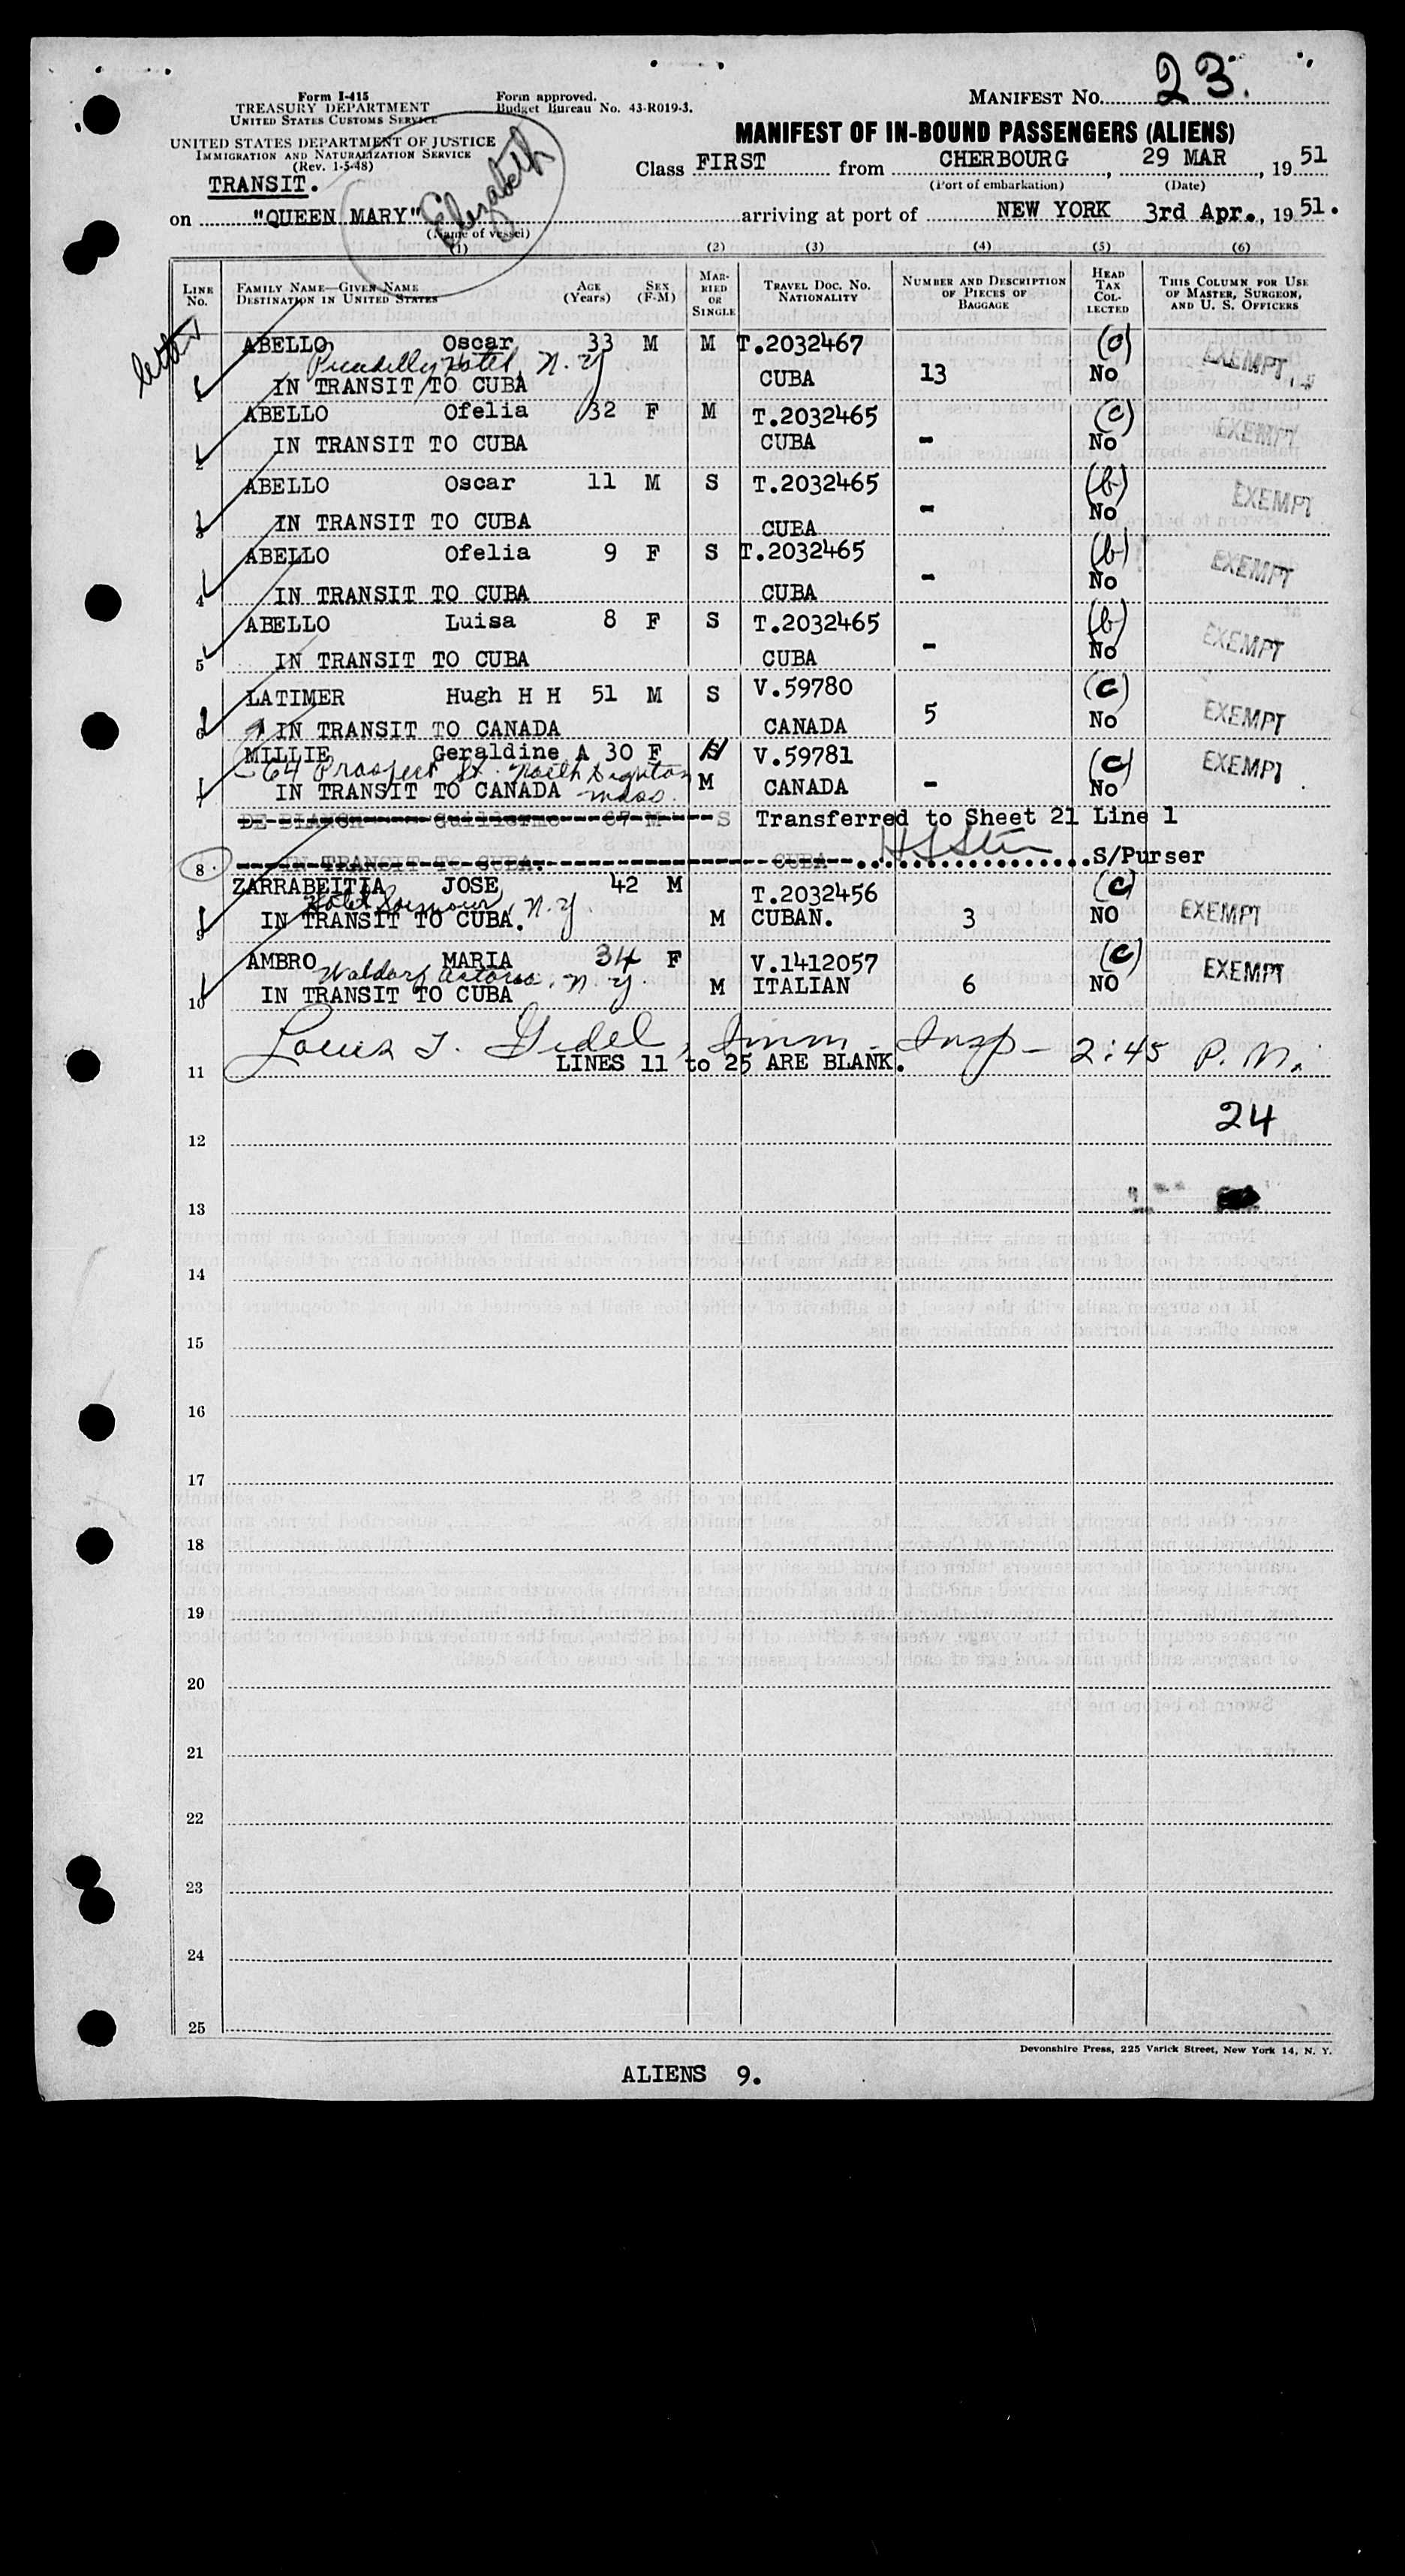 23.
Form I-415
TREASURY DEPARTMENT
UNITED STATES CUSTOMS SERVICE
Form approved.
Budget Bureau No. 43-R019-3.
MANIFEST No. 
UNITED STATES DEPARTMENT OF JUSTICE
IMMIGRATION AND NATURALIZATION SERVICE
(Rev. 1-5-48)
MANIFEST OF IN-BOUND PASSENGERS (ALIENS)
TRANSIT.
Elizabeth
Class FIRST from CHERBOURG, 29 MAR, 1951
(Port of embarkation) (Date)
on "QUEEN MARY" arriving at port of NEW YORK 3rd Apr., 1951.
(Name of vessel)
(1) (2) (3) (4) (5) (6)
LINE No. FAMILY NAME—GIVEN NAME DESTINATION IN UNITED STATES AGE (Years) SEX (F-M) MARRIED OR SINGLE TRAVEL DOC. No. NATIONALITY NUMBER AND DESCRIPTION OF PIECES OF BAGGAGE HEAD TAX COLLECTED THIS COLUMN FOR USE OF MASTER, SURGEON, AND U. S. OFFICERS
ABELLO Oscar 33 M M T.2032467 (c) EXEMPT
Piccadilly Hotel, N.Y
1 IN TRANSIT TO CUBA CUBA 13 No
ABELLO Ofelia 32 F M T.2032465 (c) EXEMPT
2 IN TRANSIT TO CUBA CUBA - No
ABELLO Oscar 11 M S T.2032465 (b) EXEMPT
3 IN TRANSIT TO CUBA CUBA - No
ABELLO Ofelia 9 F S T.2032465 (b) EXEMPT
4 IN TRANSIT TO CUBA CUBA - No
ABELLO Luisa 8 F S T.2032465 (b) EXEMPT
5 IN TRANSIT TO CUBA CUBA - No
LATIMER Hugh H H 51 M S V.59780 (c) EXEMPT
6 IN TRANSIT TO CANADA CANADA 5 No
MILLIE Geraldine A 30 F V.59781 (c) EXEMPT
64 Prospect St. North Dighton
7 IN TRANSIT TO CANADA Mass. M CANADA - No
DE BLANCK Guillermo 67 M S Transferred to Sheet 21 Line 1
8 IN TRANSIT TO CUBA. CUBA S/Purser
ZARRABEITIA JOSE 42 M T.2032456 (c) EXEMPT
Hotel N.Y
9 IN TRANSIT TO CUBA. M CUBAN. 3 NO
AMBRO MARIA 34 F V.1412057 (c) EXEMPT
Waldorf Astoria, N.Y.
10 IN TRANSIT TO CUBA M ITALIAN 6 NO
Louis Imm. Insp- 2:45 P.M.
11 LINES 11 to 25 ARE BLANK.
24
12
13
14
15
16
17
18
19
20
21
22
23
24
25
Devonshire Press, 225 Varick Street, New York 14, N. Y.
ALIENS 9.